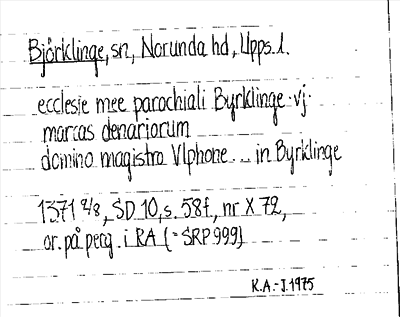 Björklinge, sn, Norunda hd, Upps. l.
ecclesie mee parochiali Byrklinge · vj ·
marcas denariorum
domino magistro Vlphone ... in Byrklinge
1371 2/8, SD 10, s. 58f., nr X 72,
or. på perg. i RA (= SRP 999)
K.A.-J. 1975